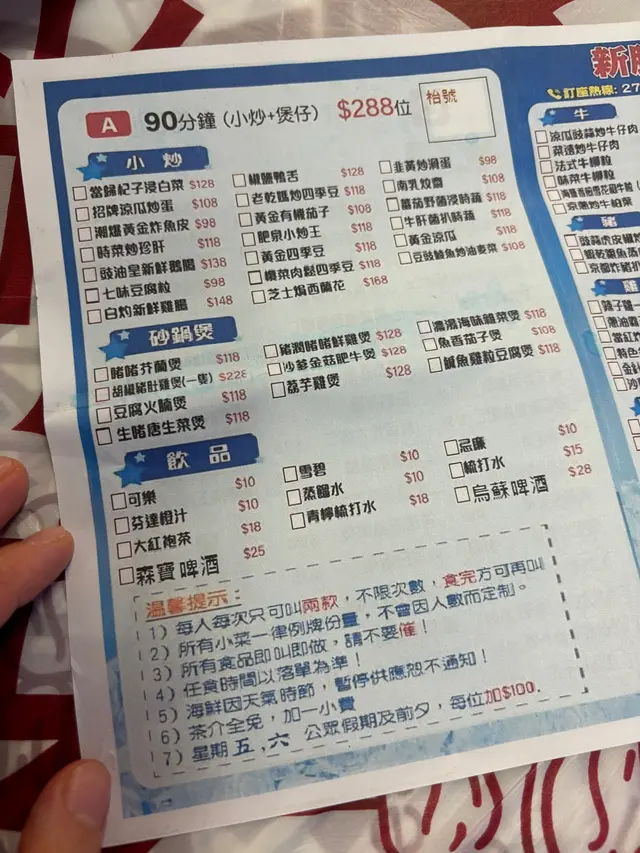 A 90分鐘 (小炒+煲仔) $288位
枱號
小炒
當歸杞子浸白菜 $128
招牌涼瓜炒蛋 $108
潮爆黃金炸魚皮 $98
時菜炒珍肝 $118
豉油皇新鮮鵝腸 $138
七味豆腐粒 $98
白灼新鮮雞腸 $148
椒鹽鴨舌 $128
老乾媽炒四季豆 $118
黃金有機茄子 $108
肥泉小炒王 $118
黃金四季豆 $118
欖菜肉鬆四季豆 $118
芝士焗西蘭花 $168
韭黃炒滑蛋 $98
南乳炆齋 $108
蕃茄野菌浸時蔬 $118
牛肝菌扒時蔬 $118
黃金涼瓜 $118
豆豉鯪魚炒油麥菜 $108
砂鍋煲
啫啫芥蘭煲 $118
胡椒豬肚雞煲(一隻) $228
豆腐火腩煲 $118
生啫唐生菜煲 $118
豬潤啫啫鮮雞煲 $128
沙爹金菇肥牛煲 $128
荔芋雞煲 $128
濃湯海味雜菜煲 $118
魚香茄子煲 $108
鹹魚雞粒豆腐煲 $118
飲品
可樂 $10
芬達橙汁 $10
大紅袍茶 $18
森寶啤酒 $25
雪碧 $10
蒸餾水 $10
青檸梳打水 $18
忌廉 $10
梳打水 $15
烏蘇啤酒 $28
溫馨提示:
1) 每人每次只可叫兩款,不限次數,食完方可再叫
2) 所有小菜一律例牌份量,不會因人數而定制。
3) 所有食品即叫即做,請不要催!
4) 任食時間以落單為準!
5) 海鮮因天氣時節,暫停供應恕不通知!
6) 茶介全免,加一小費
7) 星期五,六 公眾假期及前夕,每位加$100.
訂座熱線: 27
牛
涼瓜豉蒜炒牛仔肉
菜遠炒牛仔肉
法式牛柳粒
味菜牛柳粒
豬
雞